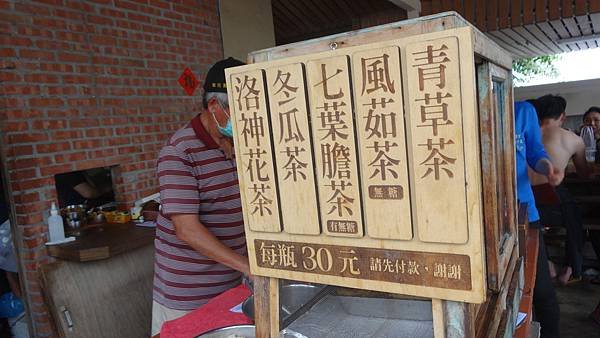 青草茶
風茹茶
無糖
七葉膽茶
有無糖
冬瓜茶
洛神花茶
每瓶 30 元 請先付款,謝謝